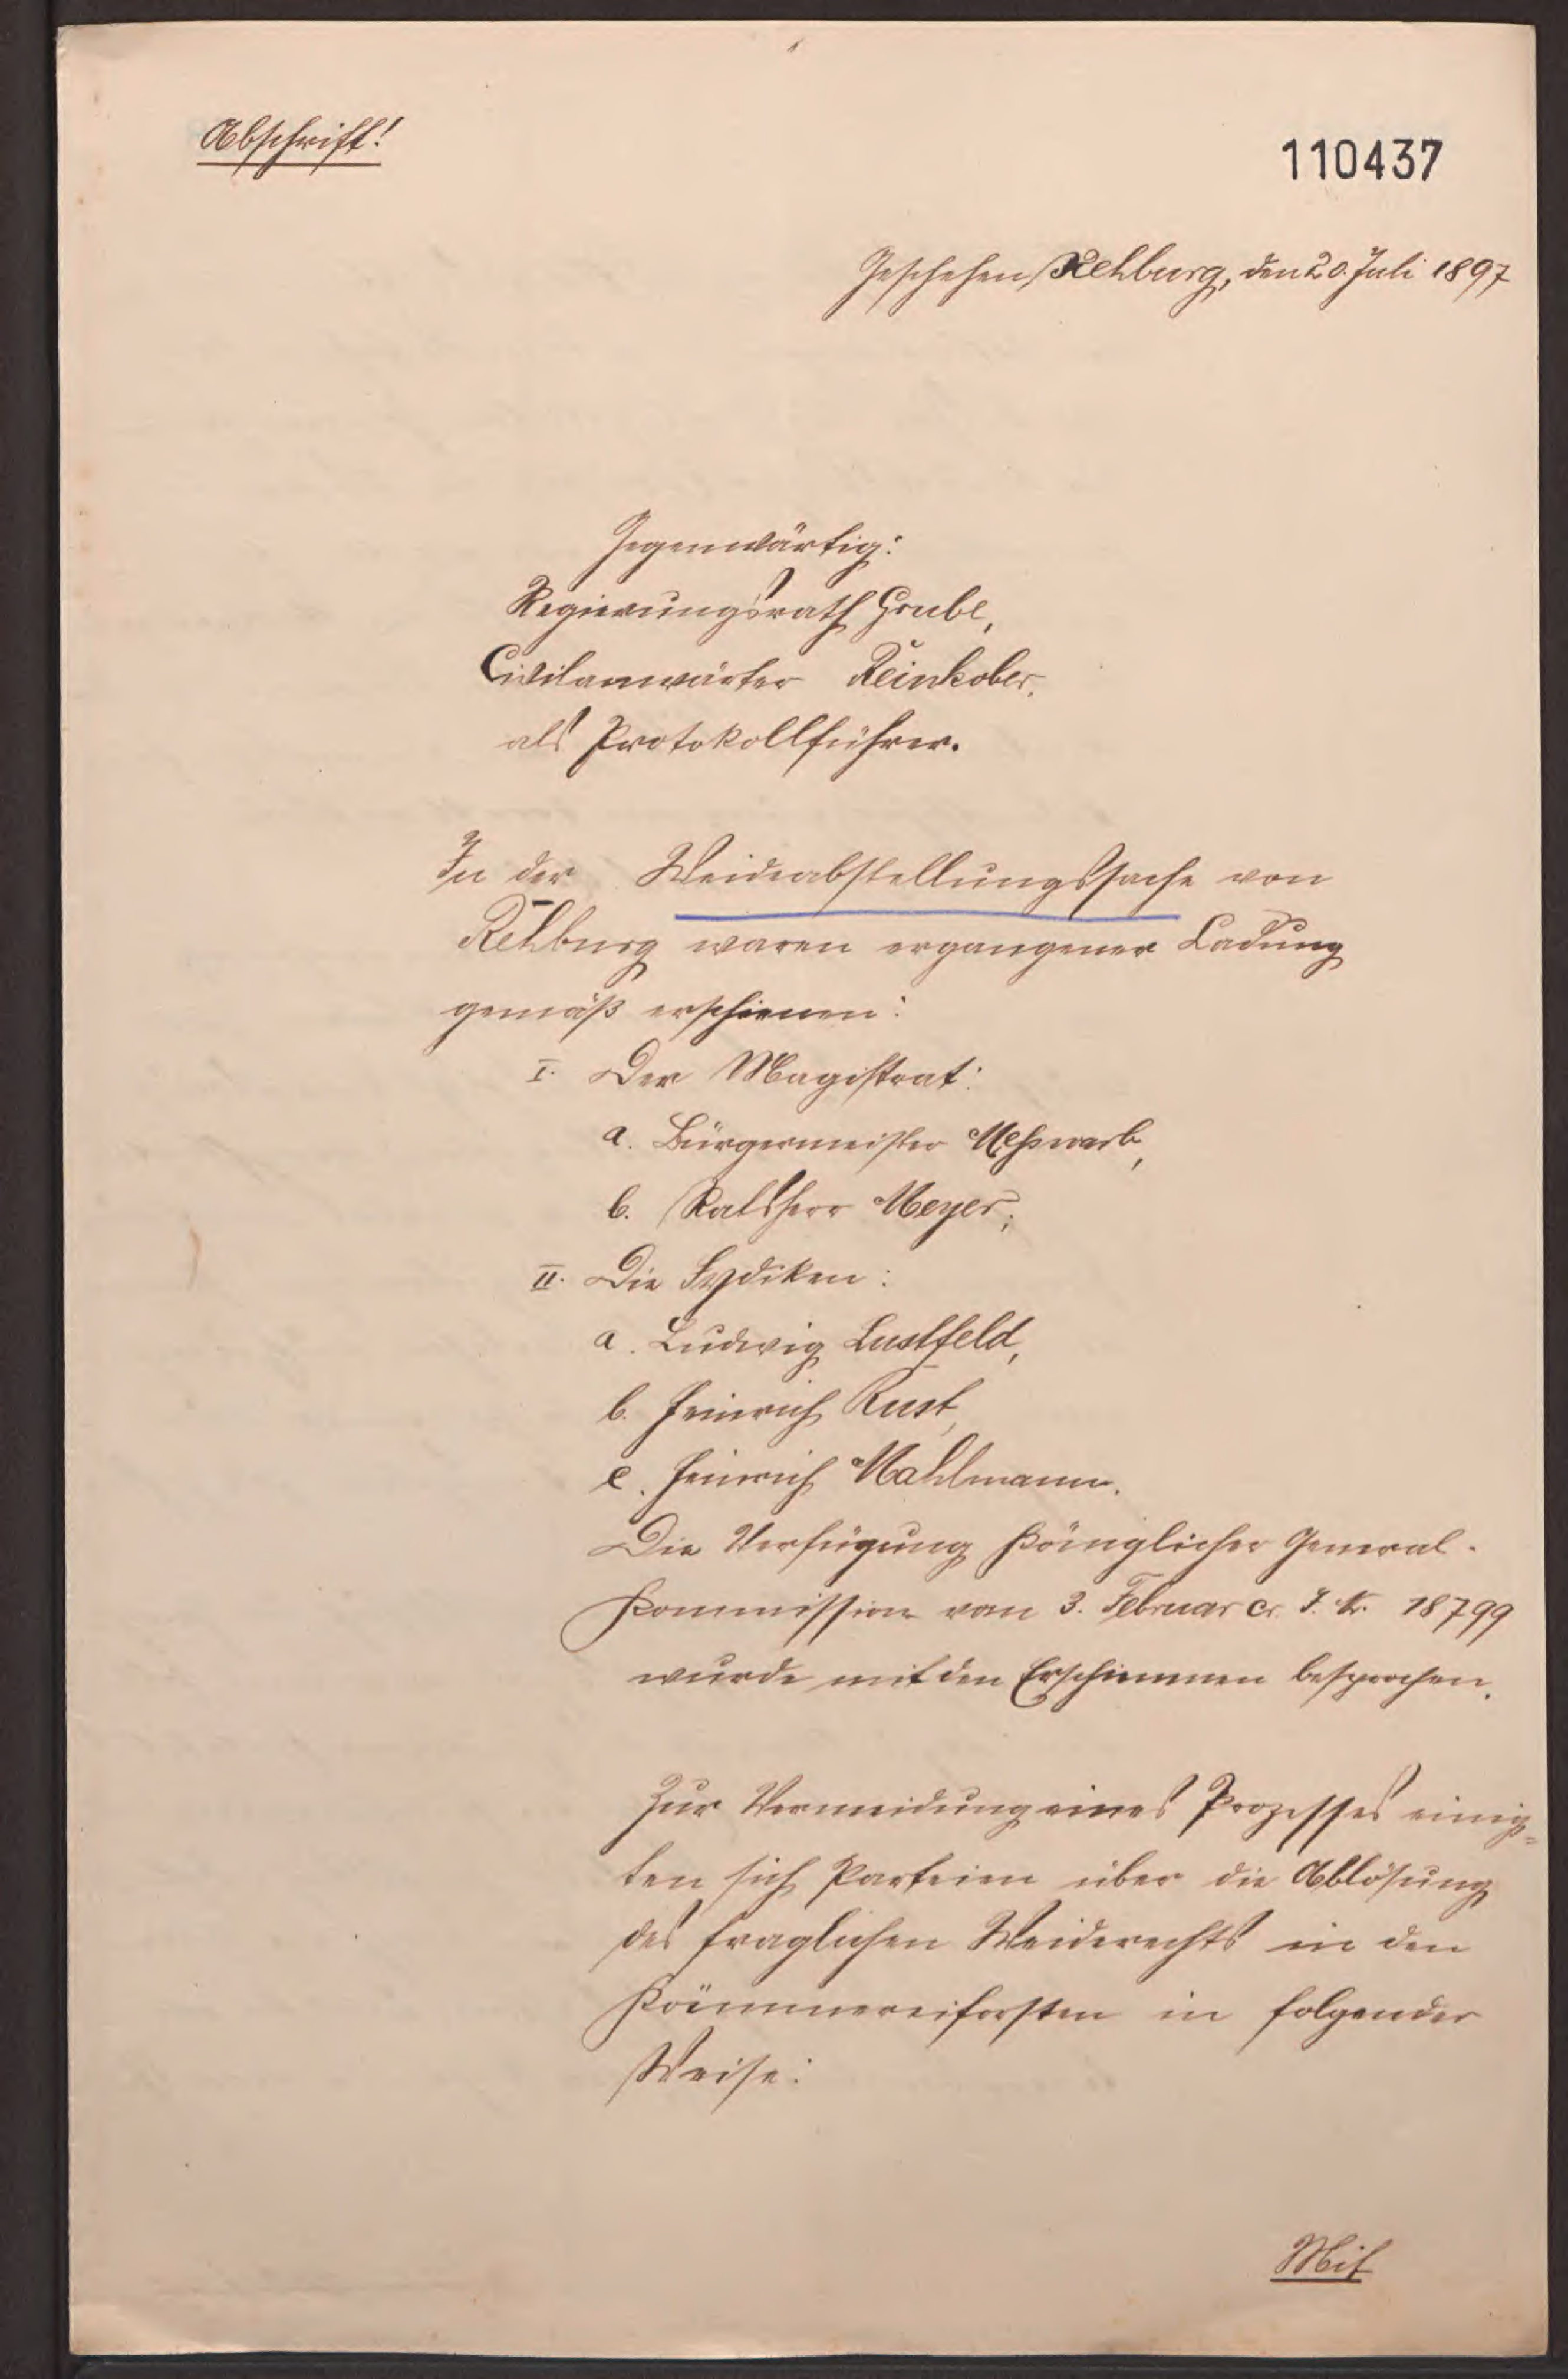 Abschrift!
110437
Geschehen Rehburg, den 20. Juli 1897
Gegenwärtig:
Regierungsrath Grube,
Civilanwärter Reinkober,
als Protokollführer.
In der Weideabstellungssache von
Rehburg waren ergangener Ladung
gemäß erschienen:
I. Der Magistrat:
a. Bürgermeister Meßwarb,
b. Ratsherr Meyer;
II. Die Sydiken:
a. Ludwig Lustfeld,
b. Heinrich Rust,
c. Heinrich Mahlmann.
Die Verfügung Königlicher General-
Kommission vom 3. Februar cr. J. Nr. 18799
wurde mit den Erschienenen besprochen.
Zur Vermeidung eines Prozesses einig=
ten sich Parteien über die Ablösung
des fraglichen Weiderechts in den
Kämmereiforsten in folgender
Weise:
Mit